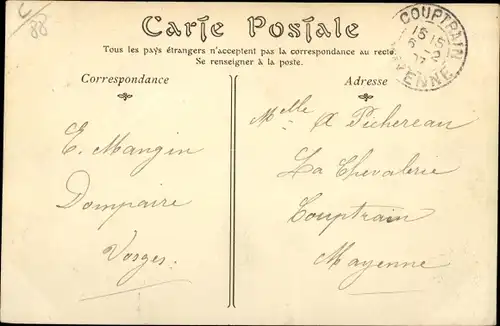 88
Carte Postale
Tous les pays étrangers n'acceptent pas la correspondance au recto.
Se renseigner à la poste.
COUPTRAIN
15 15
ENNE
Correspondance
Adresse
E. Mangin
Dompaire
Vosges.
Melle A Pichereau
La Chevalerie
Couptrain
Mayenne